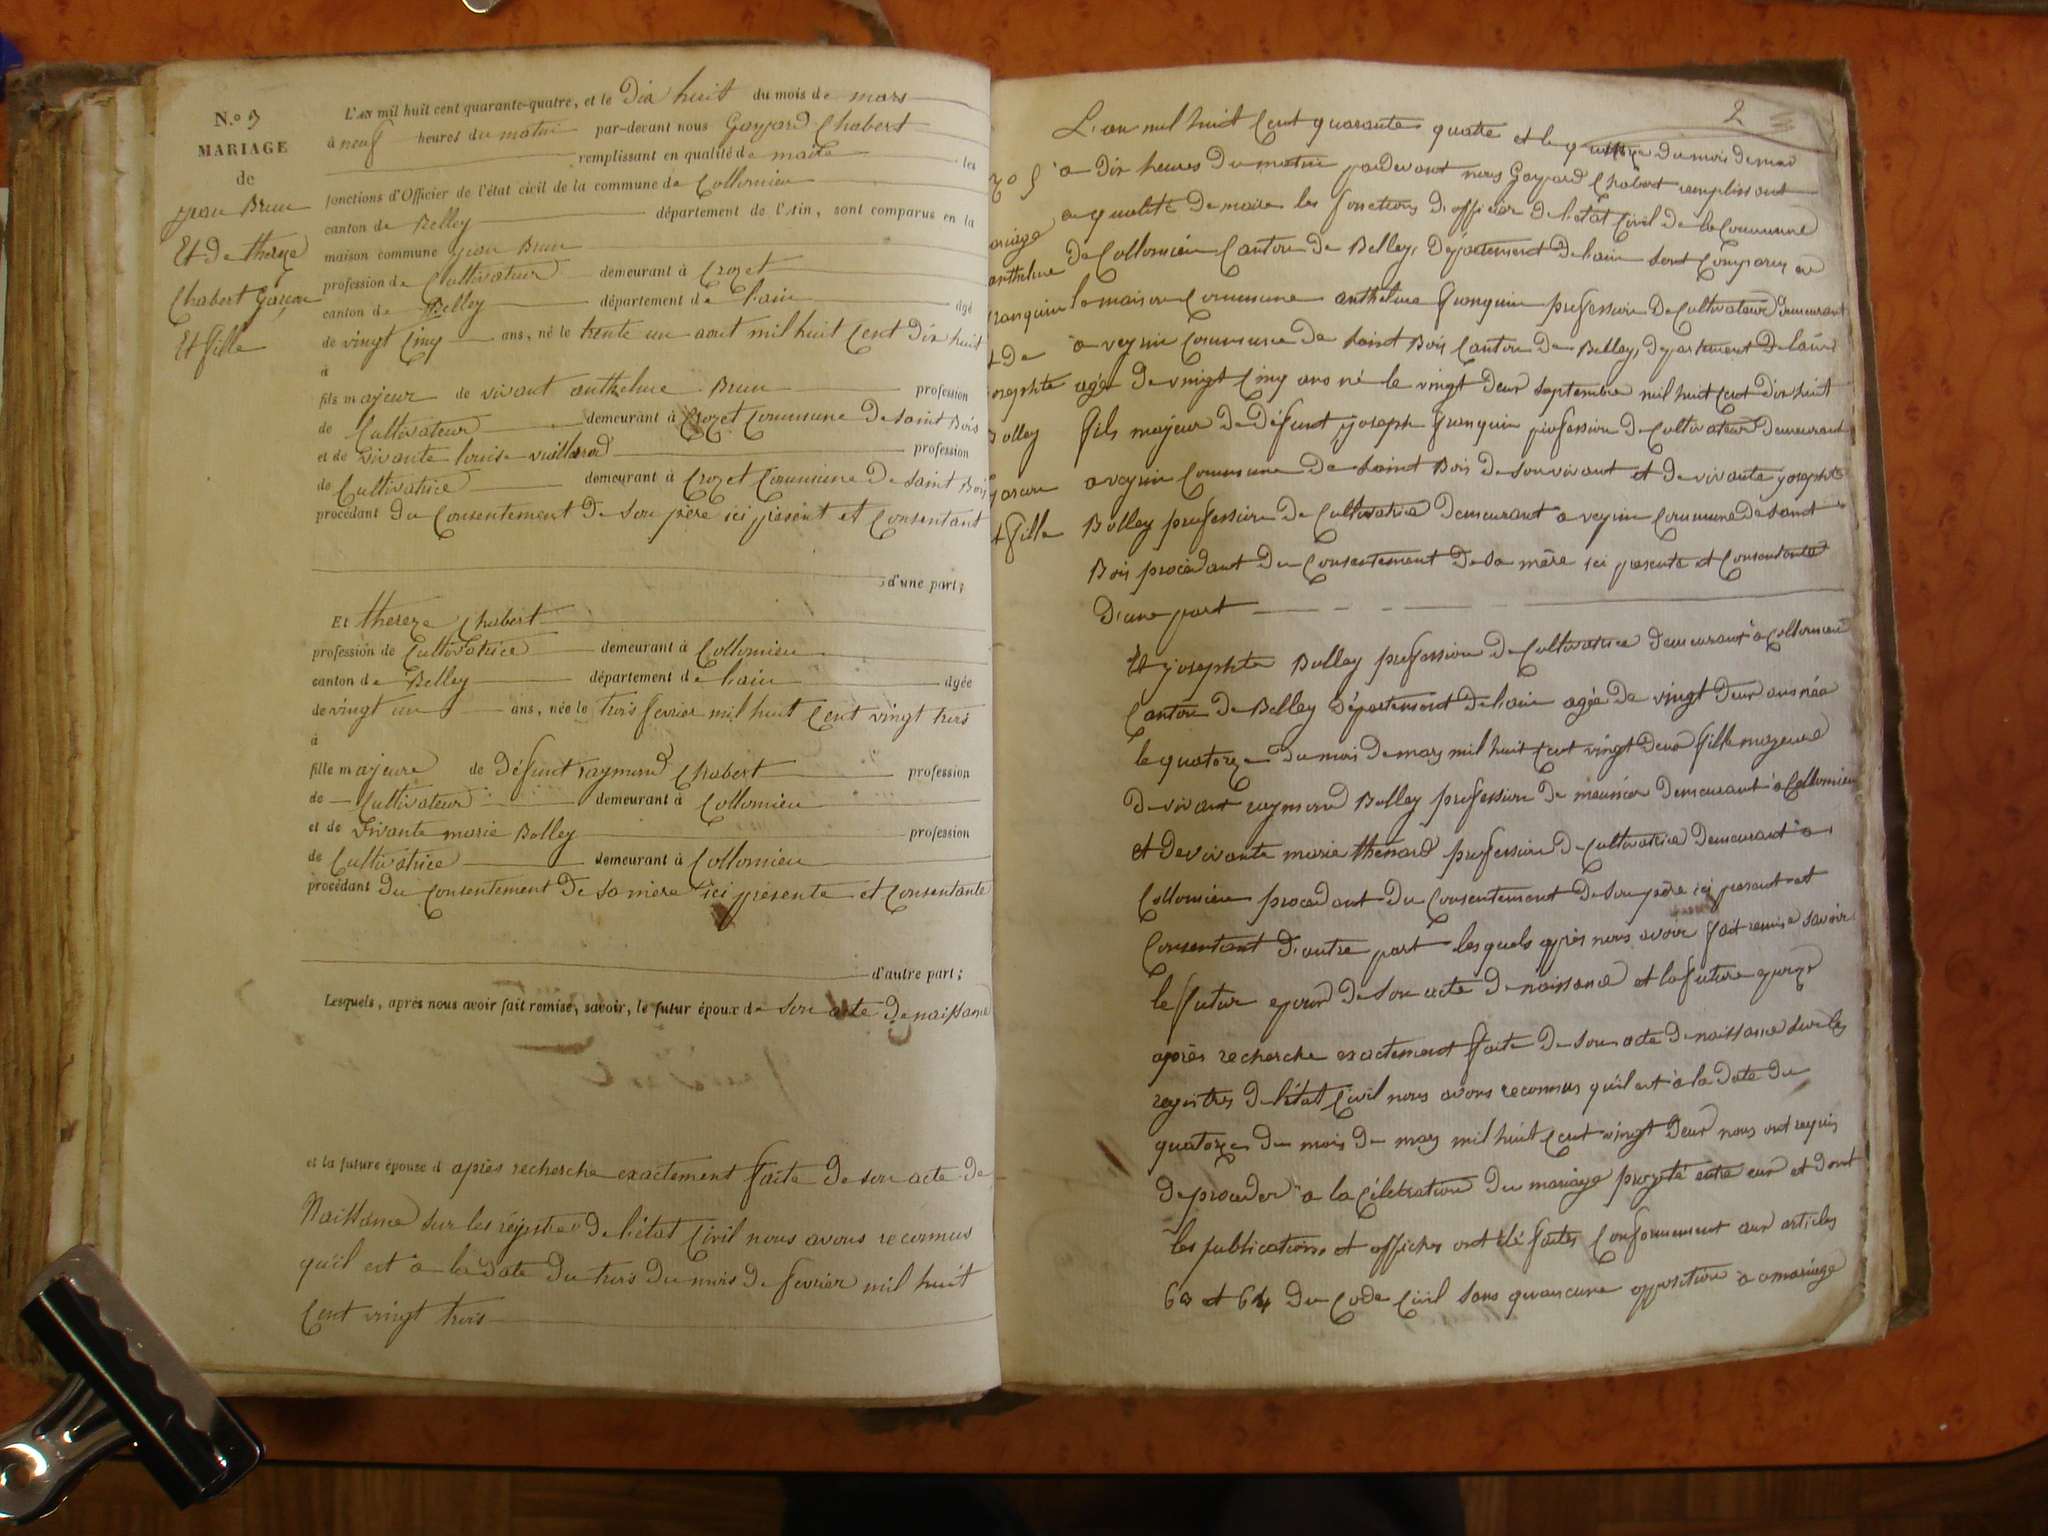 N.o 9
MARIAGE
de
jean Brun
Et De thereze
Chabert Garçon
Et fille
L'AN mil huit cent quarante-quatre, et le Dix huit du mois de mars
à neuf heures du matin par-devant nous Gaspard Chabert
remplissant en qualité de maire les
fonctions d'Officier de l'état civil de la commune de Collomieu
canton de Belley département de l'Ain, sont comparus en la
maison commune jean Brun
profession de Cultivateur demeurant à Crozet
canton de Belley département de l'ain âgé
de vingt Cinq ans, né le trente un aout mil huit Cent Dix huit
à
fils majeur de vivant anthelme Brun profession
de Cultivateur demeurant à Crozet Commune De saint Bois
et de vivante louise vuillerod profession
de Cultivatrice demeurant à Crozet Commune de saint Bois
procédant Du Consentement De son père ici présent et Consentant
d'une part;
Et thereze Chabert
profession de Cultivatrice demeurant à Collomieu
canton de Belley département de l'ain âgée
de vingt un ans, née le trois fevrier mil huit Cent vingt trois
à
fille majeure de Défunt raymond Chabert profession
de Cultivateur demeurant à Collomieu
et de vivante marie Bolley profession
de Cultivatrice demeurant à Collomieu
procédant Du Consentement De sa mère ici présente et Consentante
d'autre part;
Lesquels, après nous avoir fait remise, savoir, le futur époux de son acte De naissance
et la future épouse d après recherche exactement faite De son acte De
Naissance sur les régistres De l'état Civil nous avons reconnus
qu'il est à la Date Du trois Du mois De fevrier mil huit
Cent vingt trois
2
L'an mil huit Cent quarante quatre et le Du mois De mai
a Dix heures Du matin pardevant nous Gaspard Chabert remplissant
en qualité De maire les fonctions D'officier De l'état Civil De la Commune
De Collomieu Canton De Belley, Département De l'ain sont Comparus en
la maison Commune anthelme franquin profession De Cultivateur Demeurant
a veyrin Commune De saint Bois Canton De Belley, Département De l'ain
agé De vingt Cinq ans né le vingt Deux septembre mil huit Cent Dix huit
fils majeur De Défunt joseph franquin profession De Cultivateur Demeurant
a veyrin Commune De saint Bois De son vivant et De vivante josephte
Bolley profession De Cultivatrice Demeurant a veyrin Commune De saint
Bois procédant Du Consentement De sa mère ici presente et Consentante
D'une part
Et josephte Bolley profession De Cultivatrice Demeurant a Collomieu
Canton De Belley Département De l'ain agée De vingt Deux ans née
le quatorze Du mois De mars mil huit Cent vingt Deux fille majeure
De vivant raymond Bolley profession De meunier Demeurant à Collomieu
et De vivante marie thenard profession De Cultivatrice Demeurant a
Collomieu procédant Du Consentement De son père ici present et
Consentant D'autre part lesquels après nous avoir fait remise savoir
le futur epoux De son acte De naissance et la future epouze
après recherche exactement faite De son acte De naissance sur les
registres De l'état Civil nous avons reconnus qu'il est à la Date Du
quatorze Du mois De mars mil huit Cent vingt Deux nous ont requis
De proceder a la Célébration Du mariage projeté entre eux et Dont
les publications et affiches ont été faites Conformement aux articles
63 et 64 Du Code Civil sans qu'aucune opposition a ce mariage
anthelme
franquin
josephte
Bolley
Garçon
et fille